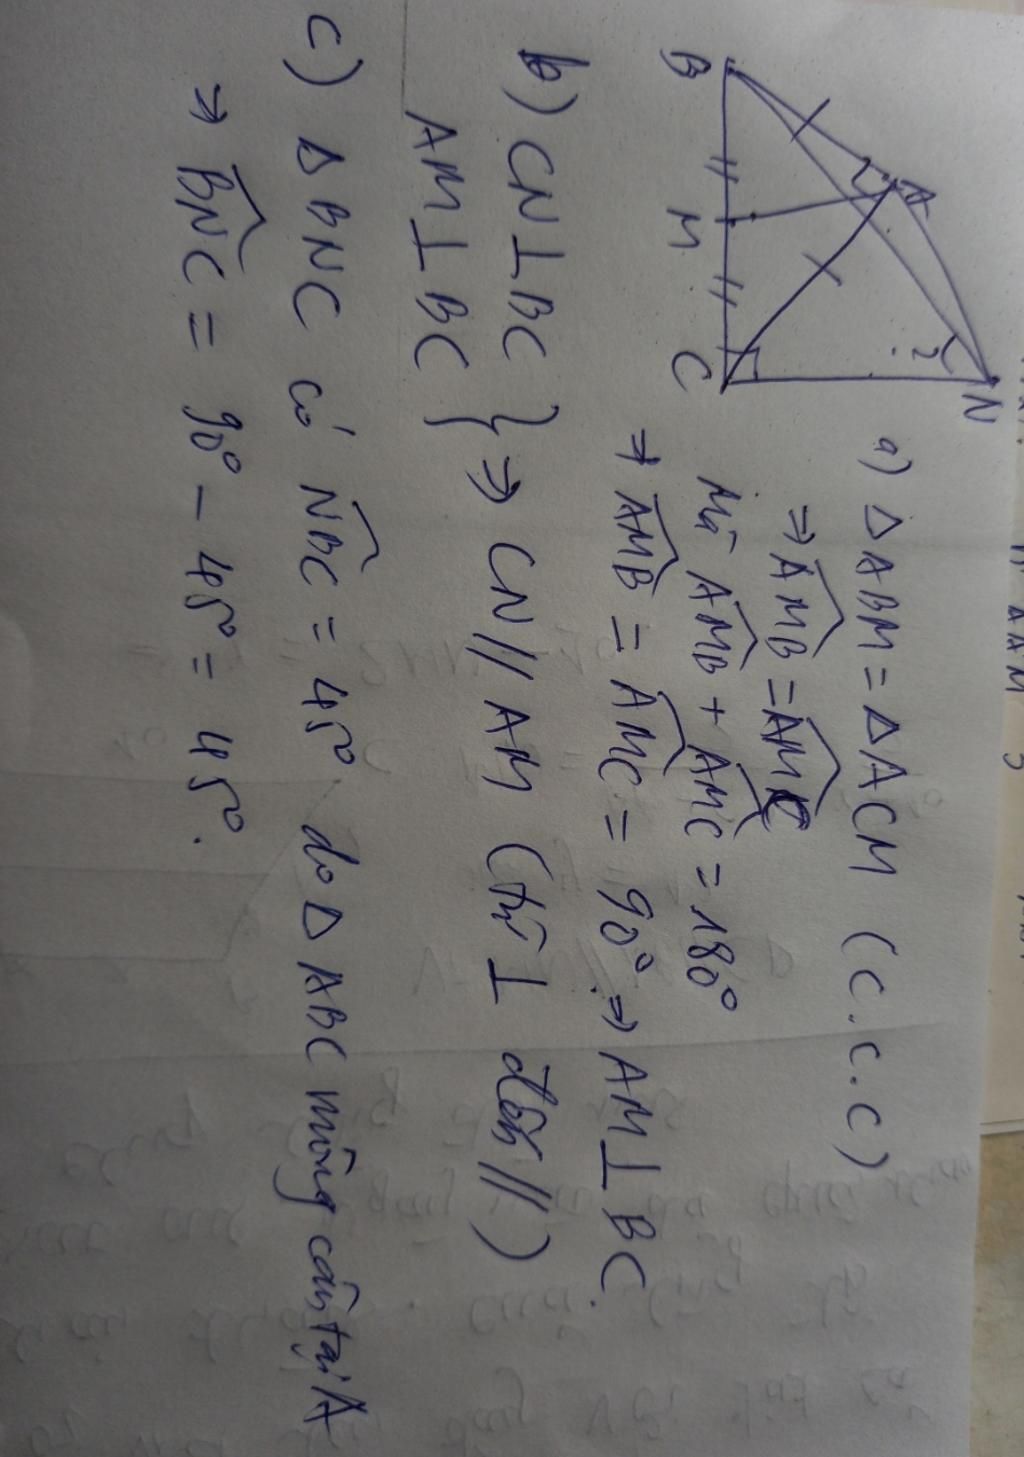 B
M
C
A
N
?
a) ΔABM = ΔACM (C.C.C)
⇒ AMB = AMC
Mà AMB + AMC = 180°
⇒ AMB = AMC = 90° ⇒ AM ⊥ BC.
b) CN ⊥ BC
AM ⊥ BC } ⇒ CN // AM (từ ⊥ đến //)
c) Δ BNC có NBC = 45° do Δ ABC vuông cân tại A
⇒ BNC = 90° - 45° = 45°.